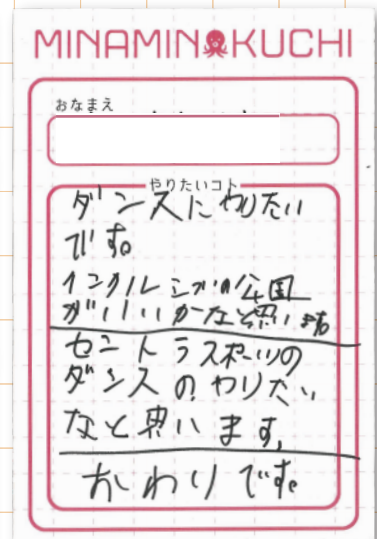 MINAMINOKUCHI
おなまえ
やりたいコト
ダンスにやりたい
です。
インクルシブの公園
がいいかなと思います。
セントラスポーツの
ダンスのやりたい
なと思います。
おわりです。